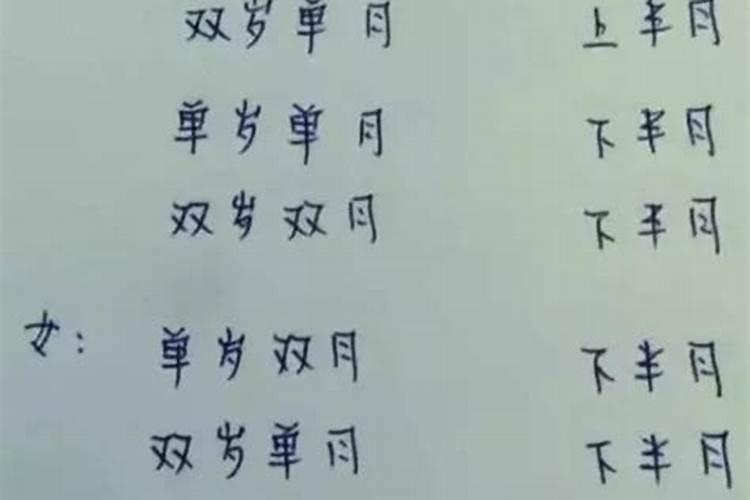 双岁单月 上半月
单岁单月 下半月
双岁双月 下半月
女： 单岁双月 下半月
双岁单月 下半月